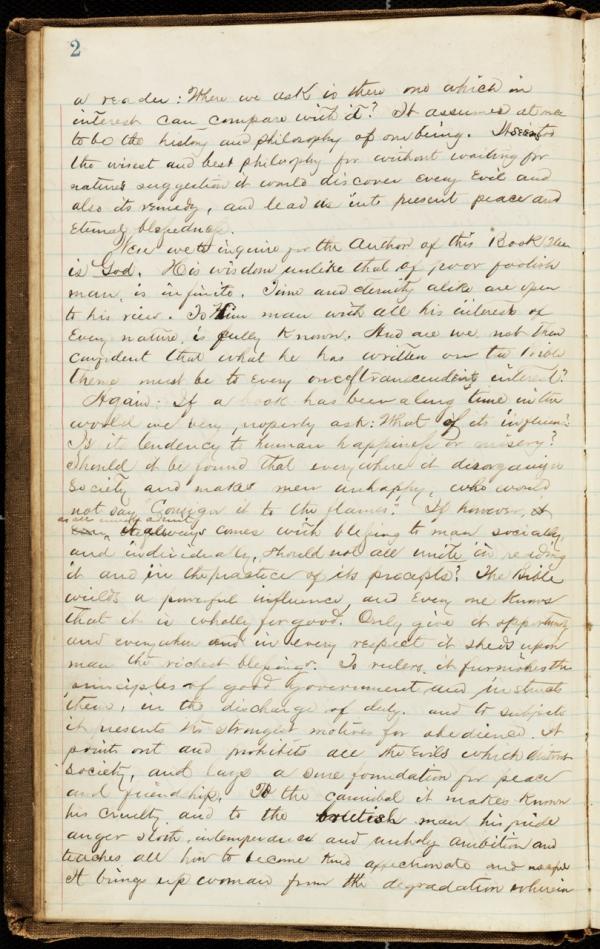 2
a reader: Where we ask is there one which in
interest can compare with it? It assumes at once
to be the history and philosophy of our being. It seems
the wisest and best philosophy for without waiting for
natures suggestion it would discover every Evil and
also its remedy, and lead us into present peace and
Eternal blessedness.
we to inquire for the Author of this Book He
is God. His wisdom unlike that of poor foolish
man, is infinite. Time and eternity alike are open
to his view. To Him man with all his interests of
Every nature, is fully Known. And are we not then
confident that what he has written on the
theme must be to Every one of transcendent interest?
Again: If a book has been a long time in the
world we very properly ask: What of its influence?
Is its tendency to human happiness or misery?
Should it be found that everywhere it disorganizes
Society and makes men unhappy, who would
not say, Consign it to the flames? If however,
as all must admit
it always comes with blessing to man socially,
and individually, should not all unite in reading
it and in the practice of its precepts? The Bible
wields a powerful influence and Every one Knows
that it is wholly for good. Only give it opportunity
and everywhere and in every respect it sheds upon
man the richest blessings. To rulers, it furnishes the
principles of good Government and instructs
them, in the discharge of duty. and to subjects
it presents the strongest motives for obedience. It
points out and prohibits all the Evils which distract
Society, and lays a sure foundation for peace
and friendship. To the cannibal it makes Known
his cruelty and to the British man his pride
anger sloth, intemperance and unholy ambition and
teaches all how to become Kind affectionate and useful
It brings up woman from the degradation wherein